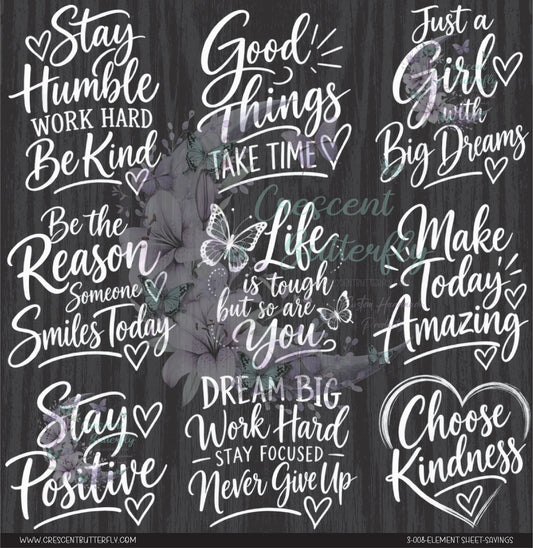 Stay
Humble
WORK HARD
Be Kind
Good
Things
TAKE TIME
Just a
Girl
with
Big Dreams
Be the
Reason
Someone
Smiles Today
Life
is tough
but so are
You
Make
Today
Amazing
Stay
Positive
DREAM BIG
Work Hard
STAY FOCUSED
Never Give Up
Choose
Kindness
Crescent
Butterfly
WWW.CRESCENTBUTTERFLY.COM
3-008-ELEMENT SHEET-SAYINGS